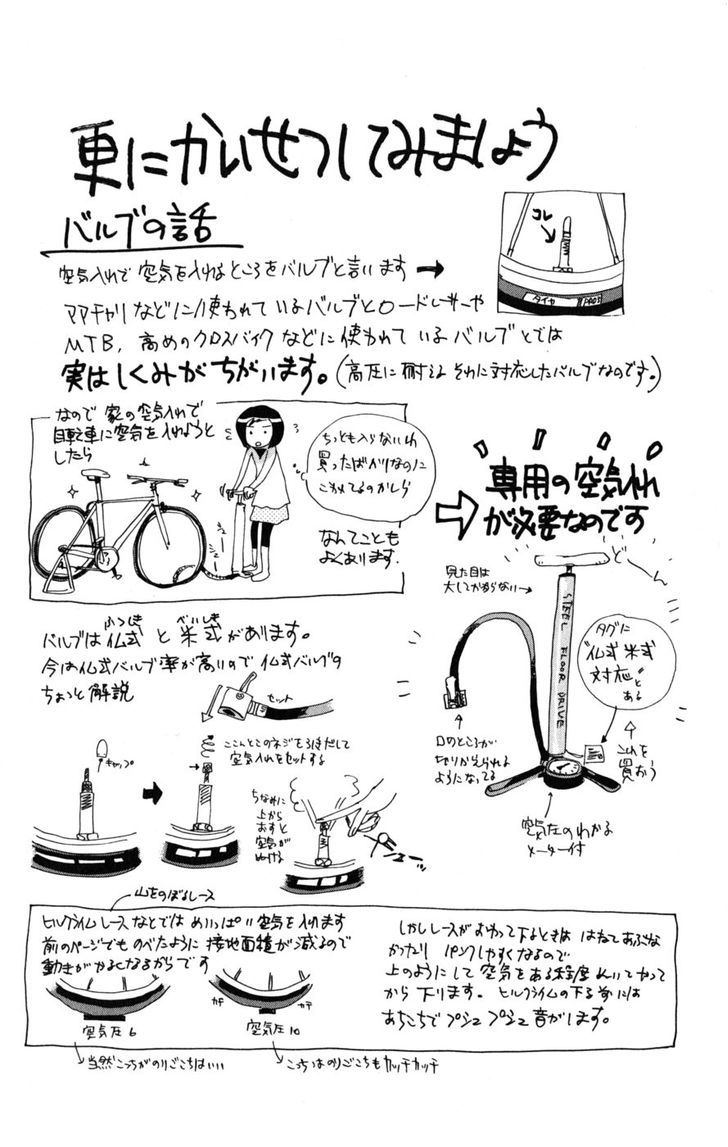 更にかいせつしてみましょう
バルブの話
コレ
タイヤ
空気入れで空気を入れるところをバルブと言います
ママチャリなどに使われているバルブとロードレーサーや
MTB, 高めのクロスバイクなどに使われているバルブとでは
実はしくみがちがいます。(高圧に耐えるそれに対応したバルブなのです。)
なので家の空気入れで
自転車に空気を入れようと
したら
ちっとも入らないわ
買ったばかりなのに
こわれてるのかしら
なんてことも
よくあります.
専用の空気入れ
が必要なのです
どーん
見た目は
大してかわらない→
STEEL FLOOR DRIVE
タグに
"仏式米式
対応"と
ある
これを
買おう
口のところが
切りかえられる
ようになってる
空気圧のわかる
メーター付
ふつしき べいしき
バルブは仏式と米式があります。
今は仏式バルブ率が高いので仏式バルブの
ちょっと解説
セット
キャップ
ここんとこのネジを引きだして
空気入れをセットする
ちなみに
上から
おすと
空気が
ぬける
山をのぼるレース
ヒルクライムレースなどではめいっぱい空気を入れます
前のページでものべたように接地面積が減るので
動きがかるくなるからです
空気圧6
カチ カチ
空気圧10
しかしレースがおわって下るときははねてあぶな
かったりパンクしやすくなるので
上のようにして空気をある程度ぬいてやって
から下ります。ヒルクライムの下る前には
あちこちでプシュプシュ音がします。
当然こっちがのりごこちはいい
こっちはのりごこちもカッチカッチ